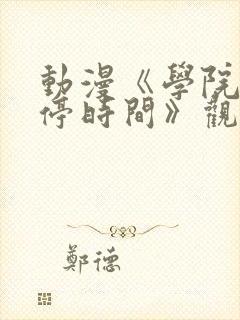 動漫《學院
停時間》觀
鄭德